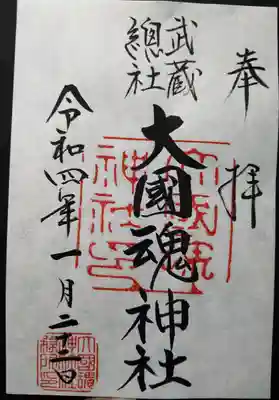 奉拝
武蔵
總社
大國魂神社
令和四年一月二十二日